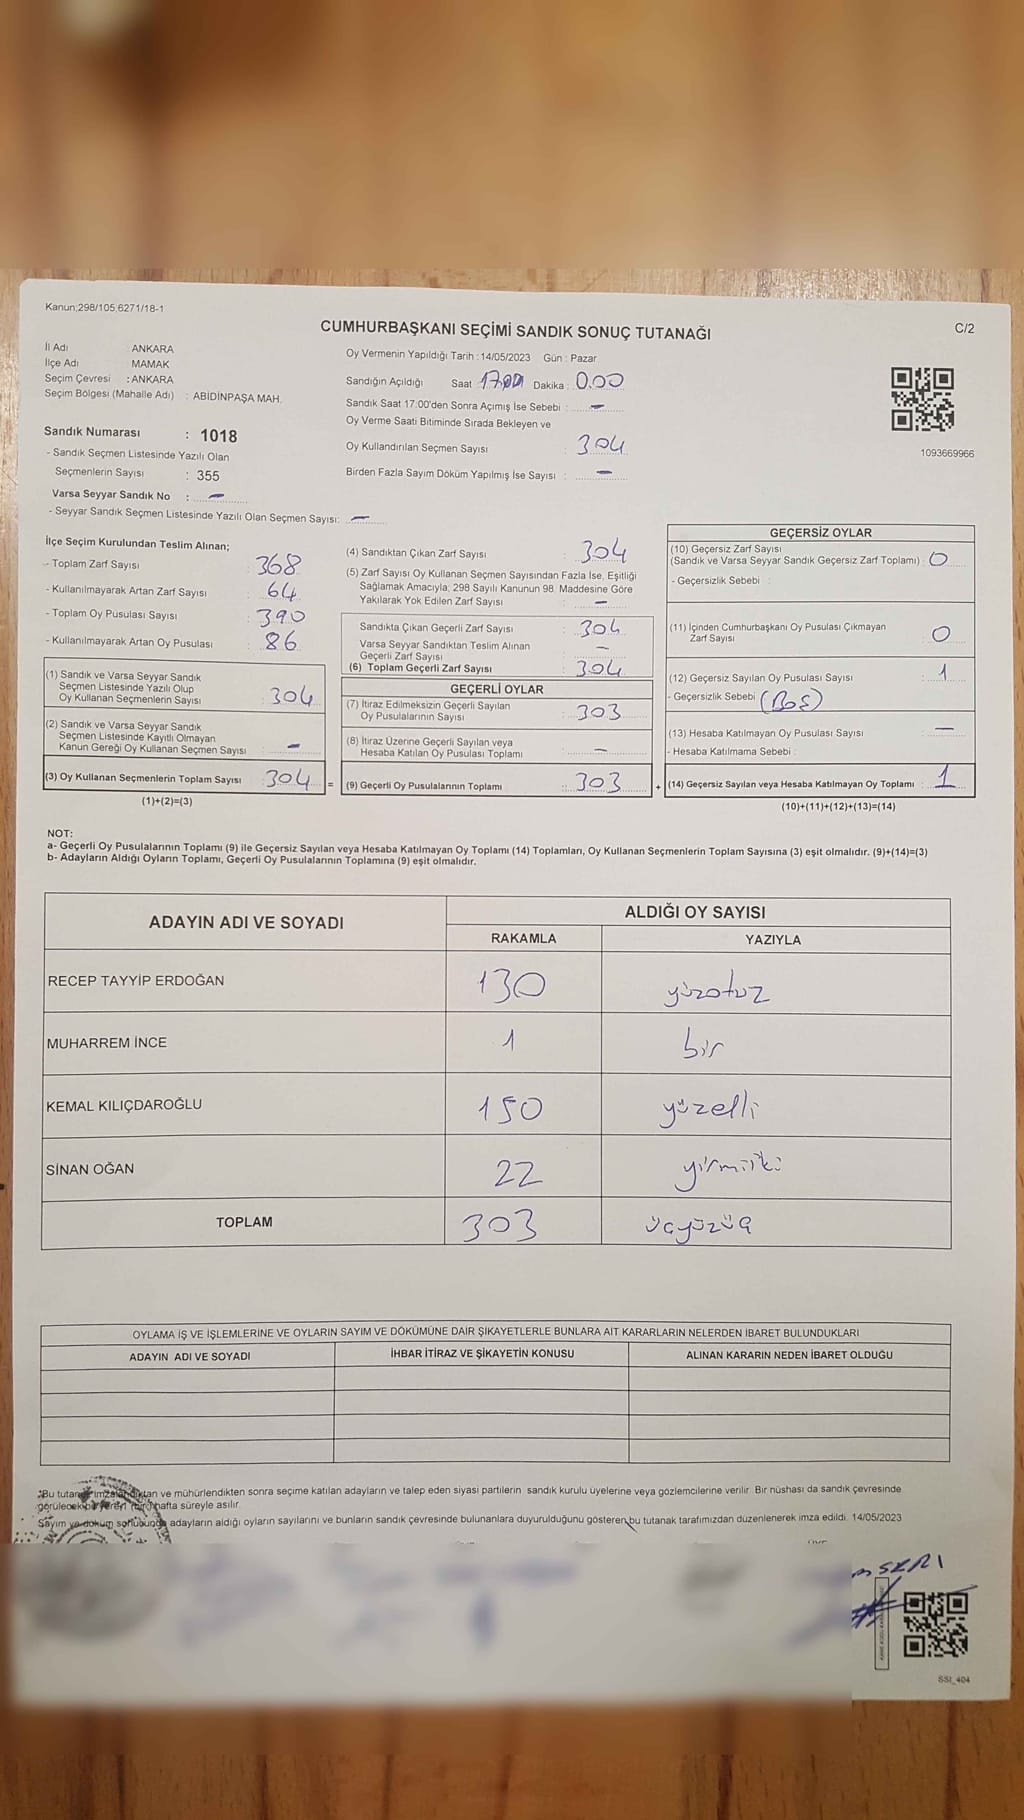 Kanun;298/105,6271/18-1
CUMHURBAŞKANI SEÇİMİ SANDIK SONUÇ TUTANAĞI
C/2
İl Adı ANKARA
İlçe Adı MAMAK
Seçim Çevresi : ANKARA
Seçim Bölgesi (Mahalle Adı) : ABİDİNPAŞA MAH.
Sandık Numarası : 1018
- Sandık Seçmen Listesinde Yazılı Olan
Seçmenlerin Sayısı : 355
Varsa Seyyar Sandık No : -
- Seyyar Sandık Seçmen Listesinde Yazılı Olan Seçmen Sayısı: -
Oy Vermenin Yapıldığı Tarih : 14/05/2023 Gün : Pazar
Sandığın Açıldığı Saat 17.00 Dakika : 0.00
Sandık Saat 17:00'den Sonra Açımış İse Sebebi : -
Oy Verme Saati Bitiminde Sırada Bekleyen ve
Oy Kullandırılan Seçmen Sayısı : 304
Birden Fazla Sayım Döküm Yapılmış İse Sayısı : -
1093669966
İlçe Seçim Kurulundan Teslim Alınan;
- Toplam Zarf Sayısı : 368
- Kullanılmayarak Artan Zarf Sayısı : 64
- Toplam Oy Pusulası Sayısı : 390
- Kullanılmayarak Artan Oy Pusulası : 86
(1) Sandık ve Varsa Seyyar Sandık
Seçmen Listesinde Yazılı Olup
Oy Kullanan Seçmenlerin Sayısı : 304
(2) Sandık ve Varsa Seyyar Sandık
Seçmen Listesinde Kayıtlı Olmayan
Kanun Gereği Oy Kullanan Seçmen Sayısı : -
(3) Oy Kullanan Seçmenlerin Toplam Sayısı : 304 =
(1)+(2)=(3)
(4) Sandıktan Çıkan Zarf Sayısı : 304
(5) Zarf Sayısı Oy Kullanan Seçmen Sayısından Fazla İse, Eşitliği
Sağlamak Amacıyla, 298 Sayılı Kanunun 98. Maddesine Göre
Yakılarak Yok Edilen Zarf Sayısı : -
Sandıkta Çıkan Geçerli Zarf Sayısı : 304
Varsa Seyyar Sandıktan Teslim Alınan
Geçerli Zarf Sayısı : -
(6) Toplam Geçerli Zarf Sayısı : 304
GEÇERLİ OYLAR
(7) İtiraz Edilmeksizin Geçerli Sayılan
Oy Pusulalarının Sayısı : 303
(8) İtiraz Üzerine Geçerli Sayılan veya
Hesaba Katılan Oy Pusulası Toplamı : -
(9) Geçerli Oy Pusulalarının Toplamı : 303 +
GEÇERSİZ OYLAR
(10) Geçersiz Zarf Sayısı
(Sandık ve Varsa Seyyar Sandık Geçersiz Zarf Toplamı) : 0
- Geçersizlik Sebebi :
(11) İçinden Cumhurbaşkanı Oy Pusulası Çıkmayan
Zarf Sayısı : 0
(12) Geçersiz Sayılan Oy Pusulası Sayısı : 1
- Geçersizlik Sebebi (Boş)
(13) Hesaba Katılmayan Oy Pusulası Sayısı : -
- Hesaba Katılmama Sebebi :
(14) Geçersiz Sayılan veya Hesaba Katılmayan Oy Toplamı : 1
(10)+(11)+(12)+(13)=(14)
NOT:
a- Geçerli Oy Pusulalarının Toplamı (9) ile Geçersiz Sayılan veya Hesaba Katılmayan Oy Toplamı (14) Toplamları, Oy Kullanan Seçmenlerin Toplam Sayısına (3) eşit olmalıdır. (9)+(14)=(3)
b- Adayların Aldığı Oyların Toplamı, Geçerli Oy Pusulalarının Toplamına (9) eşit olmalıdır.
ADAYIN ADI VE SOYADI ALDIĞI OY SAYISI
RAKAMLA YAZIYLA
RECEP TAYYİP ERDOĞAN 130 yüzotuz
MUHARREM İNCE 1 bir
KEMAL KILIÇDAROĞLU 150 yüzelli
SİNAN OĞAN 22 yirmiiki
TOPLAM 303 üçyüzüç
OYLAMA İŞ VE İŞLEMLERİNE VE OYLARIN SAYIM VE DÖKÜMÜNE DAİR ŞİKAYETLERLE BUNLARA AİT KARARLARIN NELERDEN İBARET BULUNDUKLARI
ADAYIN ADI VE SOYADI İHBAR İTİRAZ VE ŞİKAYETİN KONUSU ALINAN KARARIN NEDEN İBARET OLDUĞU
*Bu tutanak imzalandıktan ve mühürlendikten sonra seçime katılan adayların ve talep eden siyasi partilerin sandık kurulu üyelerine veya gözlemcilerine verilir. Bir nüshası da sandık çevresinde
görülecek bir yere 1 (bir) hafta süreyle asılır.
Sayım ve döküm sonucunda adayların aldığı oyların sayılarını ve bunların sandık çevresinde bulunanlara duyurulduğunu gösteren bu tutanak tarafımızdan düzenlenerek imza edildi. 14/05/2023
SSİ_404